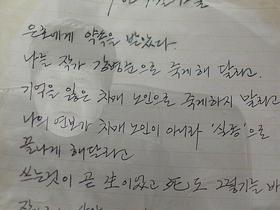 은호에게 약속을 받았다.
나를 작가 김병문으로 죽게 해 달라고.
기억을 잃은 치매 노인으로 죽게하지 말라고
나의 연보가 치매 노인이 아니라 '실종'으로
끝나게 해달라고
쓰는것이 곧 生이었고 死도 그렇기를 바